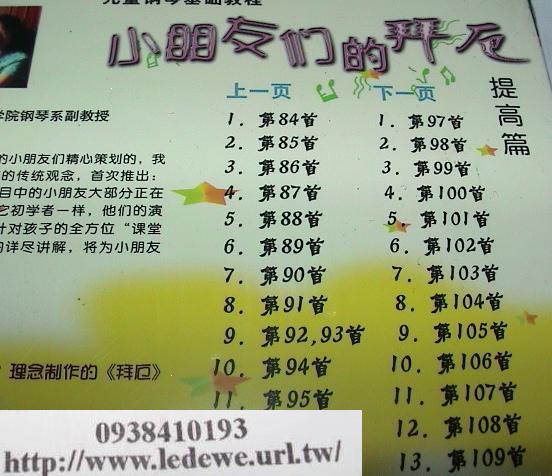 儿童钢琴基础教程
小朋友们的拜厄
提高篇
学院钢琴系副教授
的小朋友们精心策划的，我
的传统观念，首次推出：
目中的小朋友大部分正在
它初学者一样，他们的演
针对孩子的全方位“课堂
的详尽讲解，将为小朋友
理念制作的《拜厄》
上一页
1. 第84首
2. 第85首
3. 第86首
4. 第87首
5. 第88首
6. 第89首
7. 第90首
8. 第91首
9. 第92,93首
10. 第94首
11. 第95首
下一页
1. 第97首
2. 第98首
3. 第99首
4. 第100首
5. 第101首
6. 第102首
7. 第103首
8. 第104首
9. 第105首
10. 第106首
11. 第107首
12. 第108首
13. 第109首
0938410193
http://www.ledewe.url.tw/